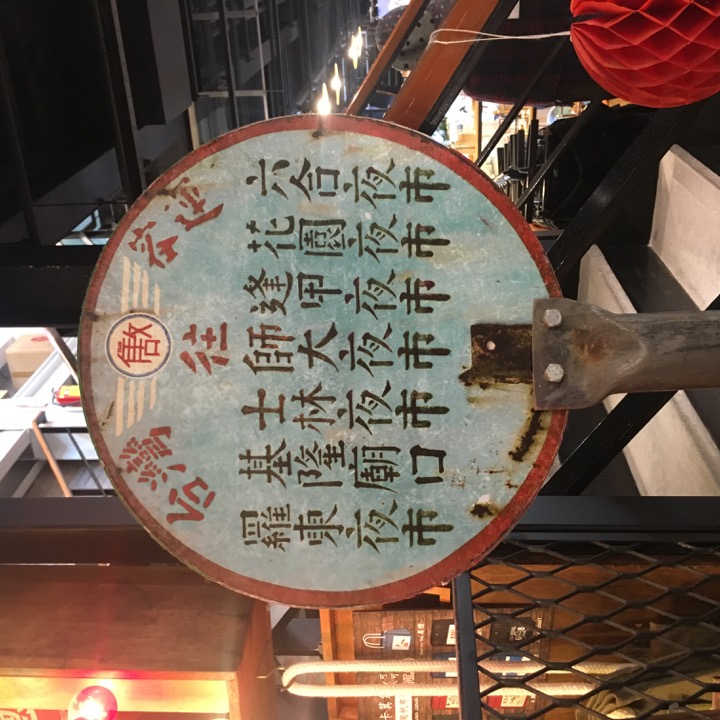 台灣 客運
往
六合夜市
花園夜市
逢甲夜市
師大夜市
士林夜市
基隆廟口
羅東夜市